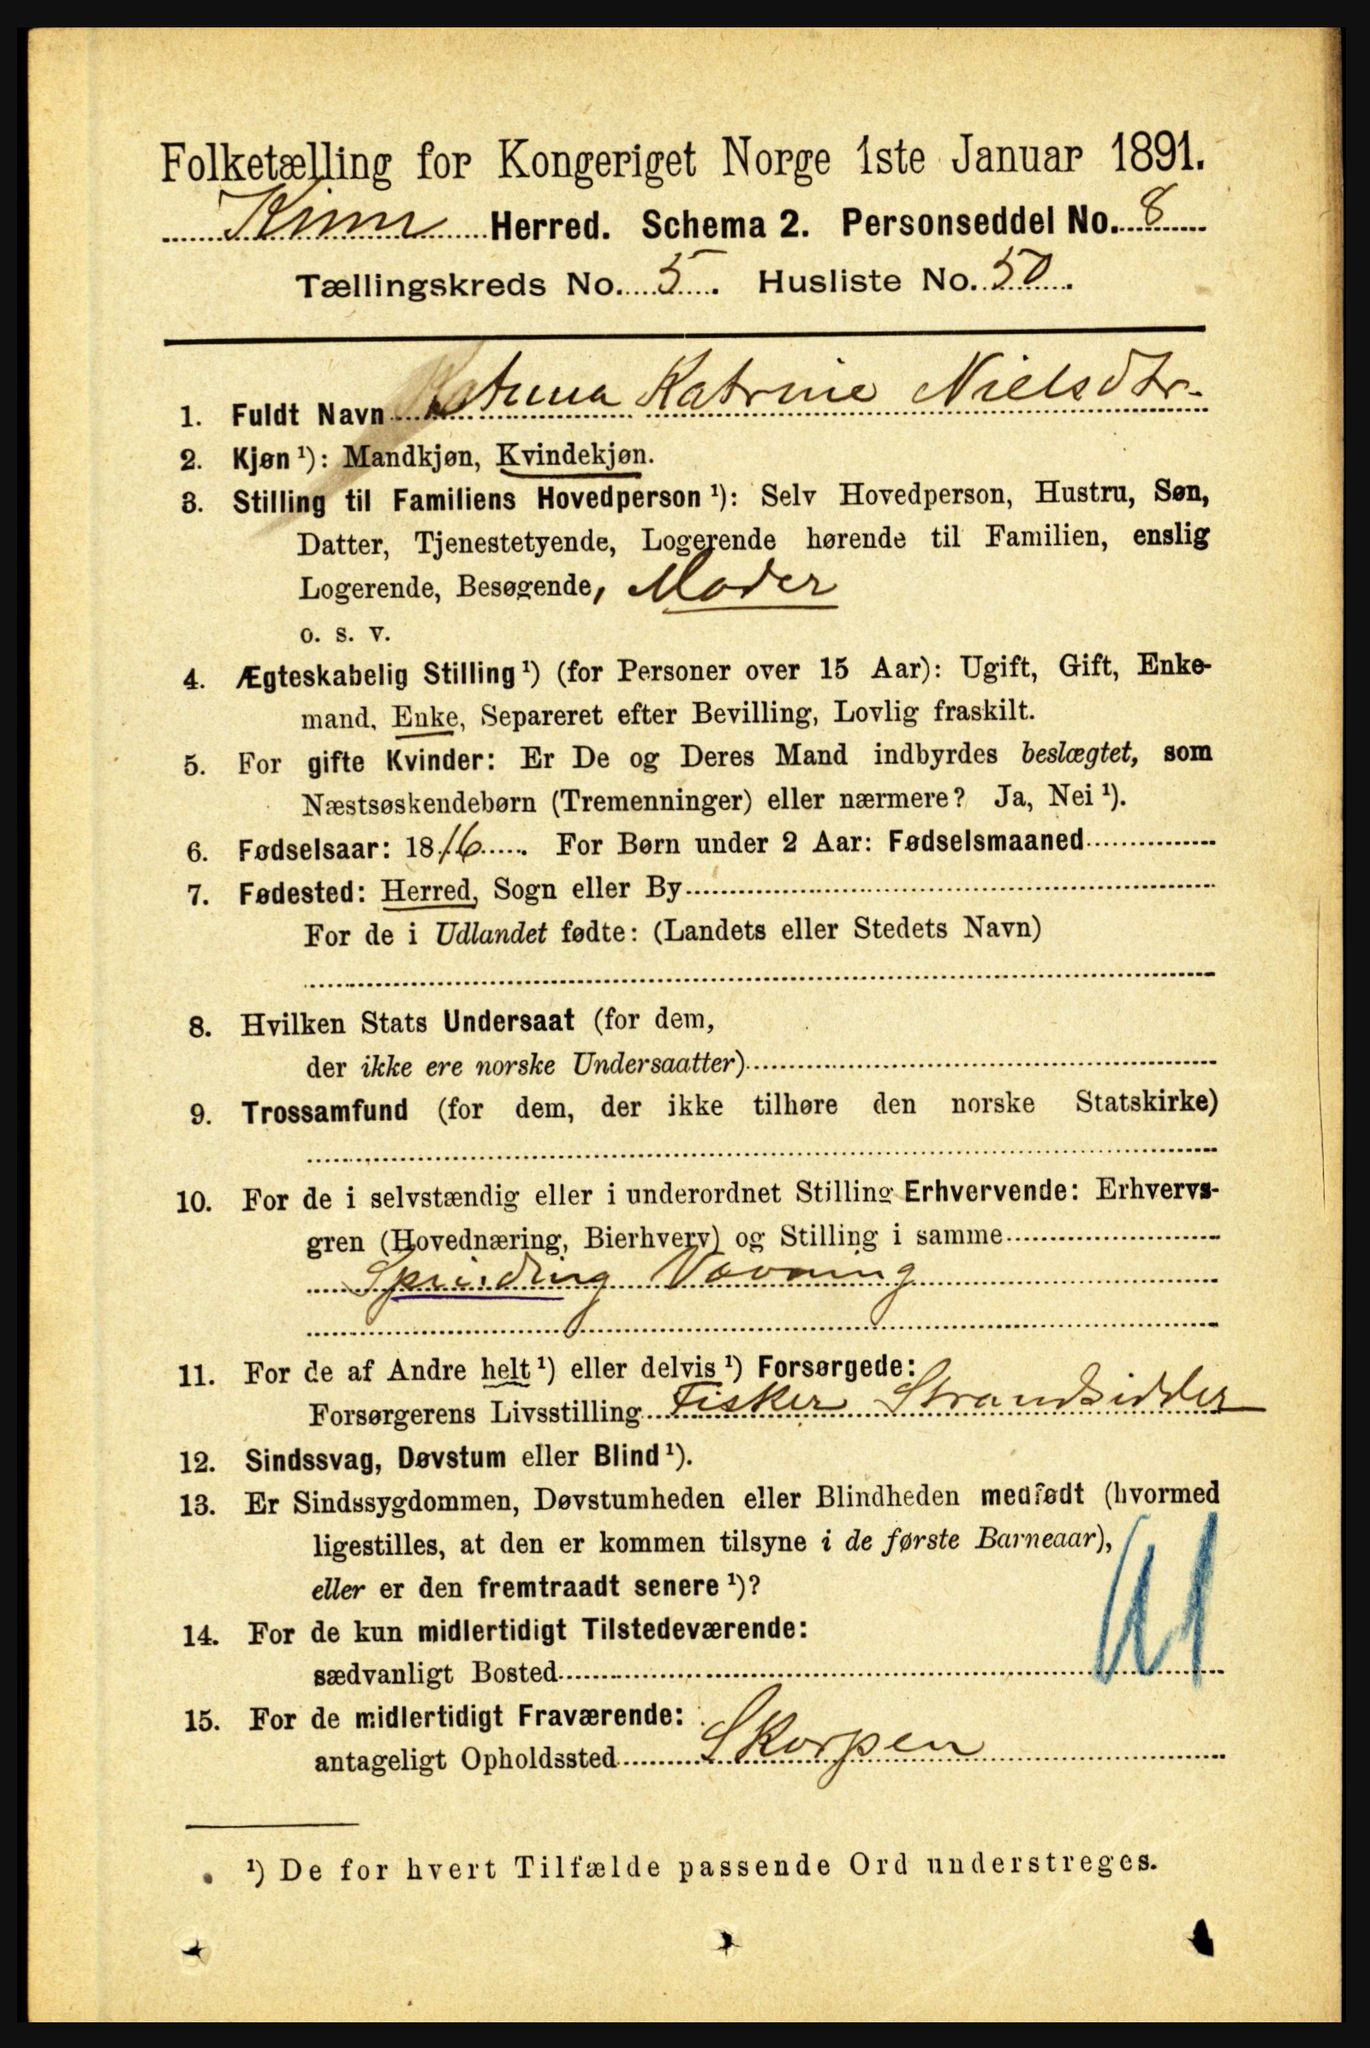 Folketælling for Kongeriget Norge 1ste Januar 1891.
Kinn Herred. Schema 2. Personseddel No. 8
Tællingskreds No. 5. Husliste No. 50.
1. Fuldt Navn Anna Katrine Nielsdtr.
2. Kjøn ¹): Mandkjøn, Kvindekjøn.
3. Stilling til Familiens Hovedperson ¹): Selv Hovedperson, Hustru, Søn,
Datter, Tjenestetyende, Logerende hørende til Familien, enslig
Logerende, Besøgende, Moder
o. s. v.
4. Ægteskabelig Stilling ¹) (for Personer over 15 Aar): Ugift, Gift, Enke-
mand, Enke, Separeret efter Bevilling, Lovlig fraskilt.
5. For gifte Kvinder: Er De og Deres Mand indbyrdes beslægtet, som
Næstsøskendebørn (Tremenninger) eller nærmere? Ja, Nei ¹).
6. Fødselsaar: 1816. For Børn under 2 Aar: Fødselsmaaned
7. Fødested: Herred, Sogn eller By
For de i Udlandet fødte: (Landets eller Stedets Navn)
8. Hvilken Stats Undersaat (for dem,
der ikke ere norske Undersaatter)
9. Trossamfund (for dem, der ikke tilhøre den norske Statskirke)
10. For de i selvstændig eller i underordnet Stilling Erhvervende: Erhvervs-
gren (Hovednæring, Bierhverv) og Stilling i samme
Spinding Vævning
11. For de af Andre helt ¹) eller delvis ¹) Forsørgede:
Forsørgerens Livsstilling Fisker Strandsidder
12. Sindssvag, Døvstum eller Blind ¹).
13. Er Sindssygdommen, Døvstumheden eller Blindheden medfødt (hvormed
ligestilles, at den er kommen tilsyne i de første Barneaar),
eller er den fremtraadt senere ¹)?
14. For de kun midlertidigt Tilstedeværende:
sædvanligt Bosted
15. For de midlertidigt Fraværende:
antageligt Opholdssted Skorpen
¹) De for hvert Tilfælde passende Ord understreges.